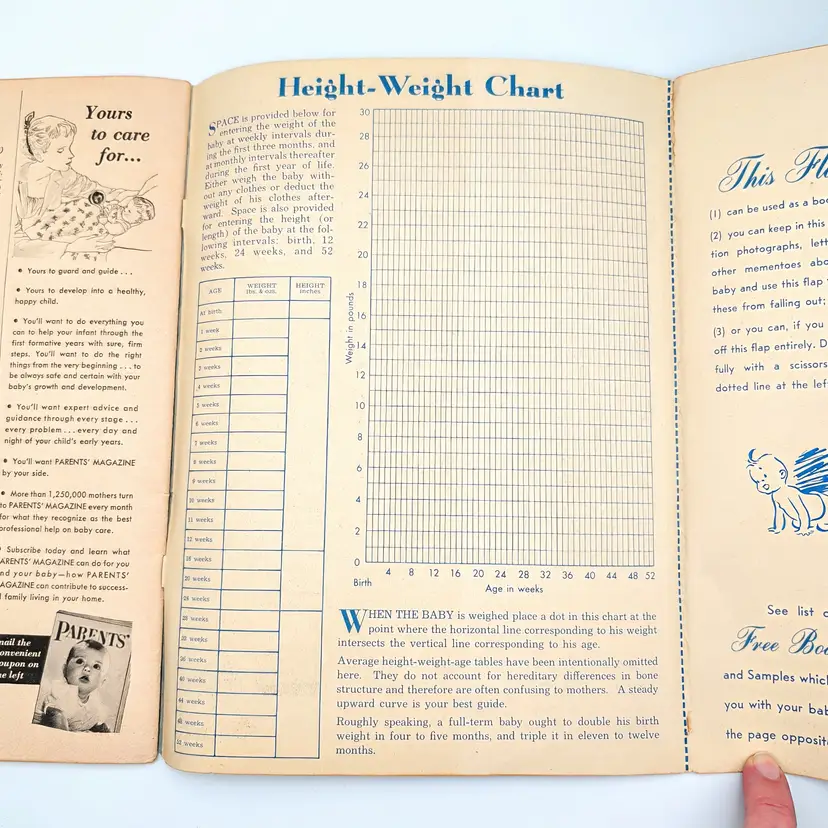 Yours
to care
for...
• Yours to guard and guide . . .
• Yours to develop into a healthy,
happy child.
• You'll want to do everything you
can to help your infant through the
first formative years with sure, firm
steps. You'll want to do the right
things from the very beginning . . . to
be always safe and certain with your
baby's growth and development.
• You'll want expert advice and
guidance through every stage . . .
every problem . . . every day and
night of your child's early years.
• You'll want PARENTS' MAGAZINE
by your side.
• More than 1,250,000 mothers turn
to PARENTS' MAGAZINE every month
for what they recognize as the best
professional help on baby care.
Subscribe today and learn what
PARENTS' MAGAZINE can do for you
and your baby—how PARENTS'
MAGAZINE can contribute to success-
family living in your home.
mail the
convenient
coupon on
the left
PARENTS'
Height-Weight Chart
SPACE is provided below for
entering the weight of the
baby at weekly intervals dur-
ing the first three months, and
at monthly intervals thereafter
during the first year of life.
Either weigh the baby with-
out any clothes or deduct the
weight of his clothes after-
ward. Space is also provided
for entering the height (or
length) of the baby at the fol-
lowing intervals: birth, 12
weeks, 24 weeks, and 52
weeks.
AGE WEIGHT lbs. & ozs. HEIGHT inches
At birth
1 week
2 weeks
3 weeks
4 weeks
5 weeks
6 weeks
7 weeks
8 weeks
9 weeks
10 weeks
11 weeks
12 weeks
16 weeks
20 weeks
24 weeks
28 weeks
32 weeks
36 weeks
40 weeks
44 weeks
48 weeks
52 weeks
30
28
26
24
22
20
18
16
14
12
10
8
6
4
2
0
Weight in pounds
Birth 4 8 12 16 20 24 28 32 36 40 44 48 52
Age in weeks
WHEN THE BABY is weighed place a dot in this chart at the
point where the horizontal line corresponding to his weight
intersects the vertical line corresponding to his age.
Average height-weight-age tables have been intentionally omitted
here. They do not account for hereditary differences in bone
structure and therefore are often confusing to mothers. A steady
upward curve is your best guide.
Roughly speaking, a full-term baby ought to double his birth
weight in four to five months, and triple it in eleven to twelve
months.
This
(1) can be used as a
(2) you can keep in this
tion photographs,
other mementoes
baby and use this flap
these from falling out;
(3) or you can, if you
off this flap entirely.
fully with a scissors
dotted line at the left
See list
Free
and Samples
you with your
the page